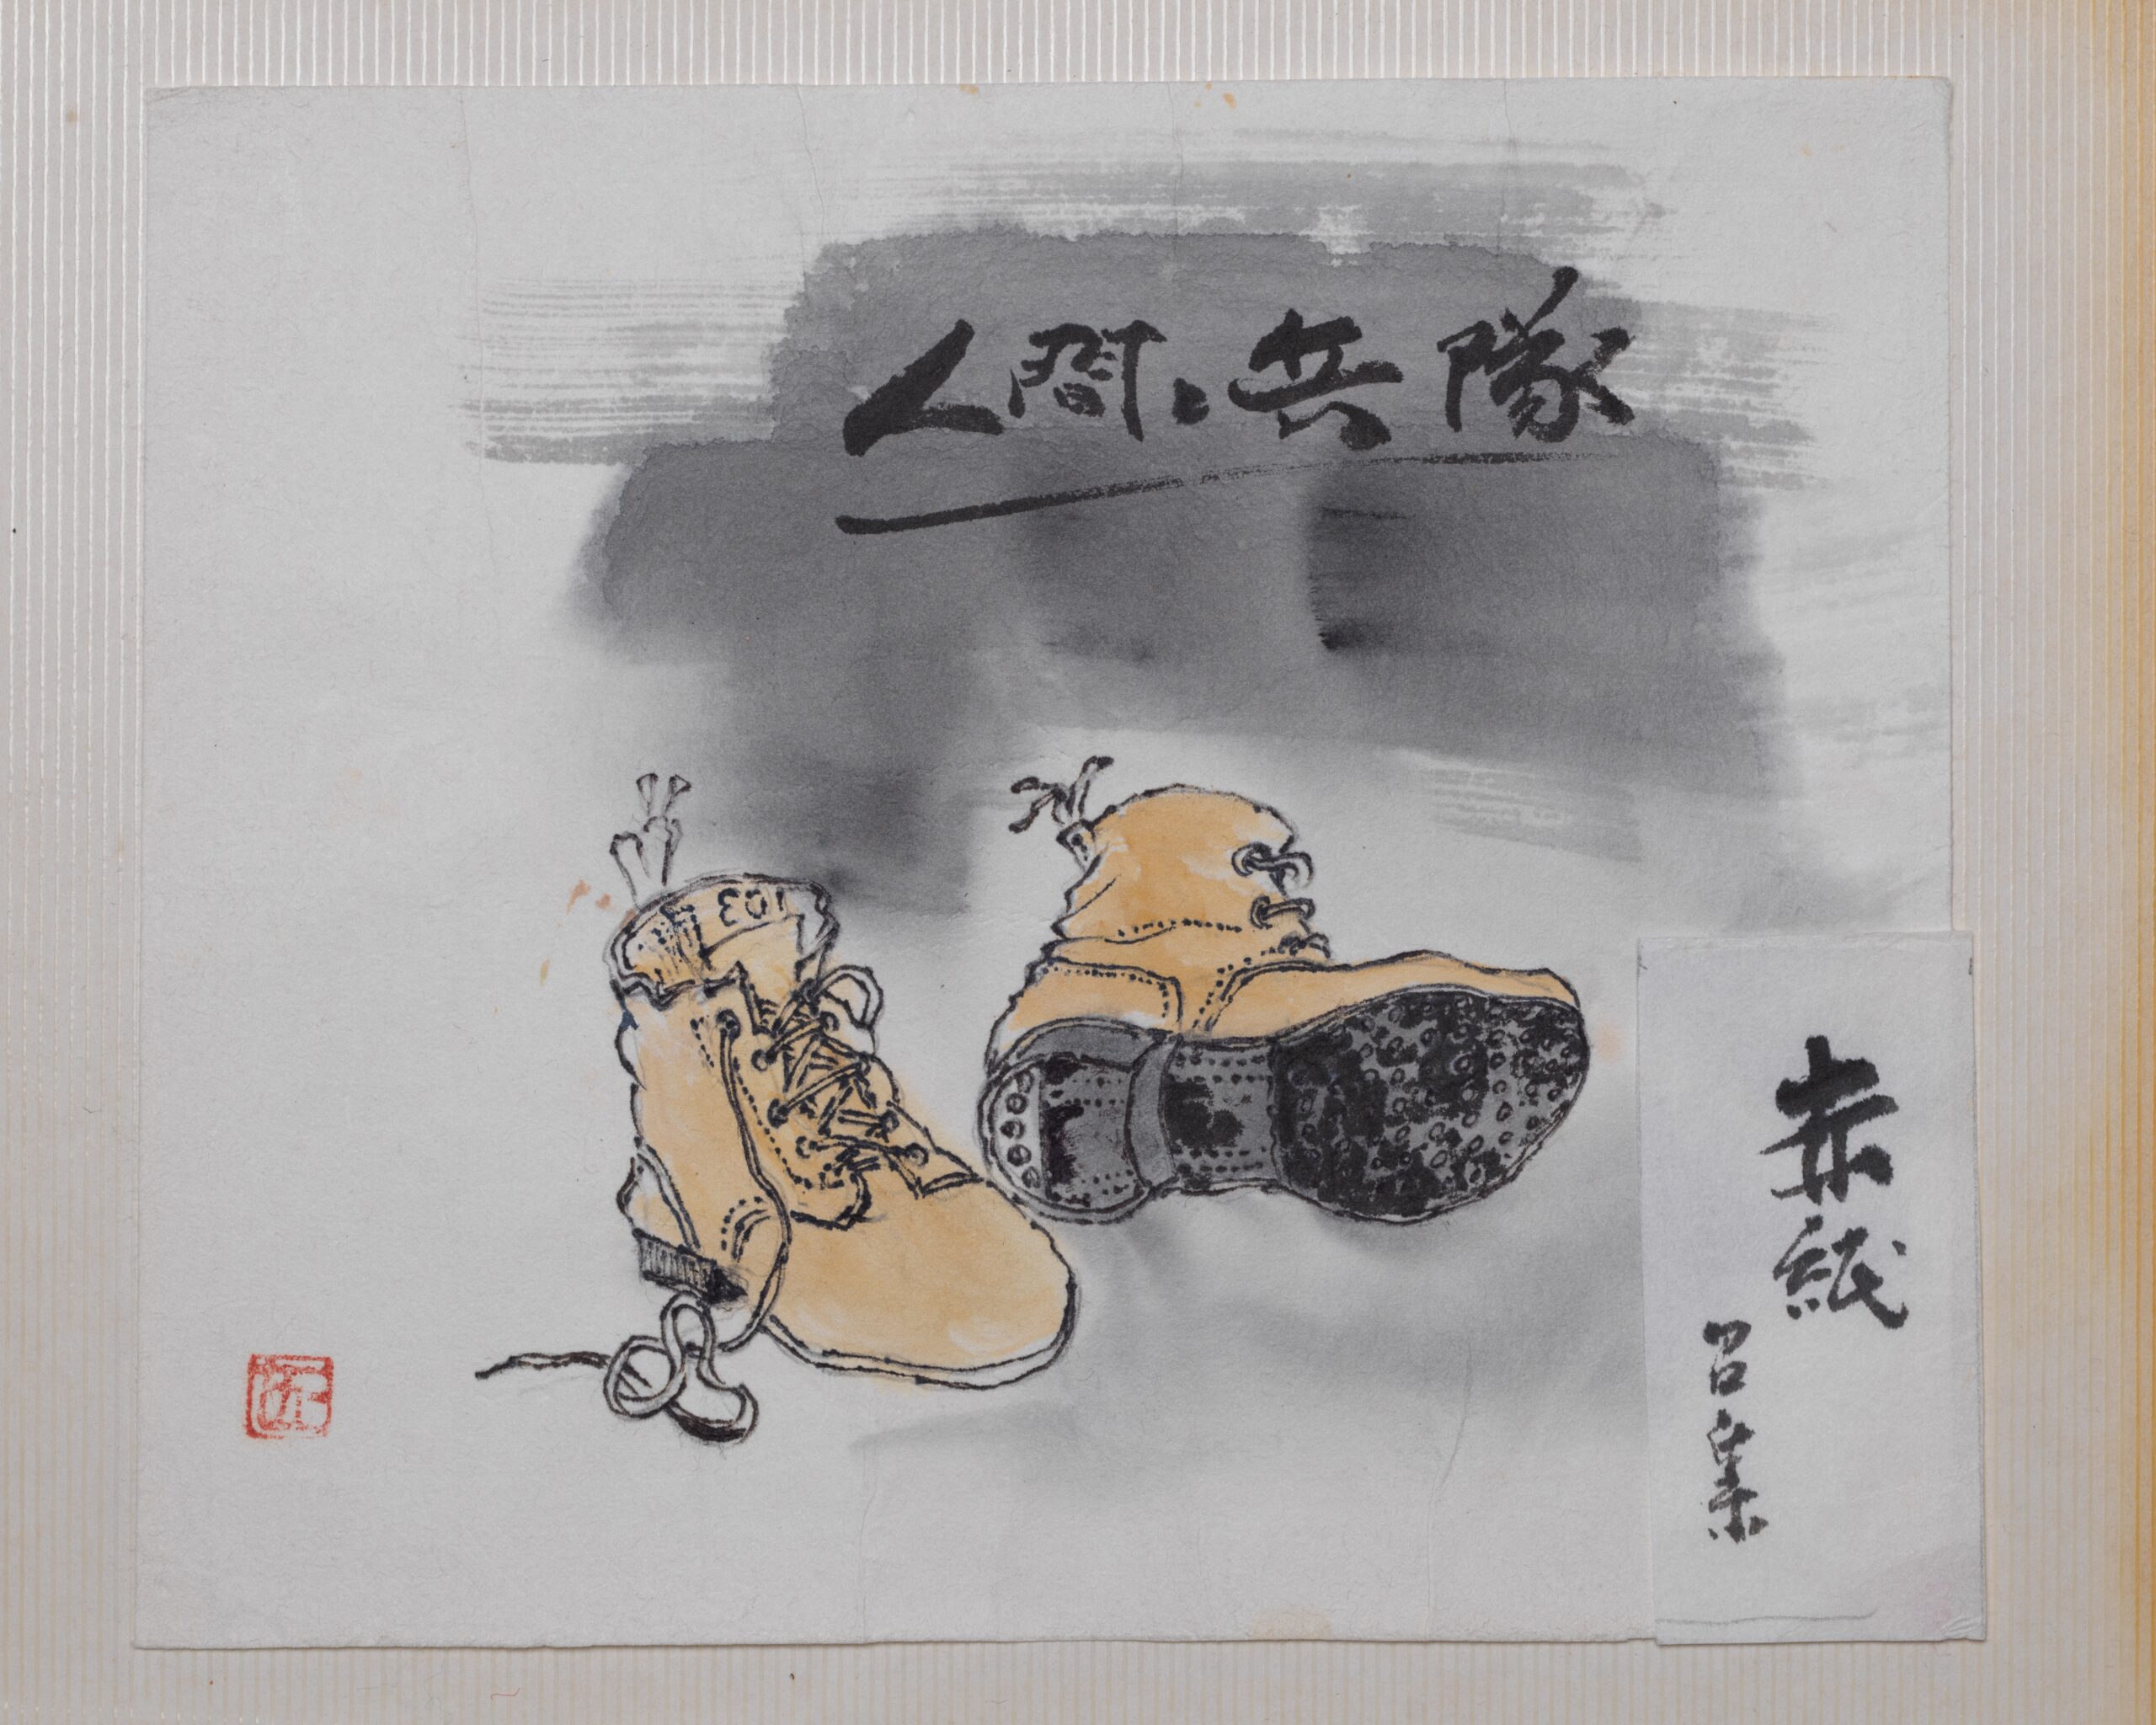 人間、兵隊
赤紙
召集